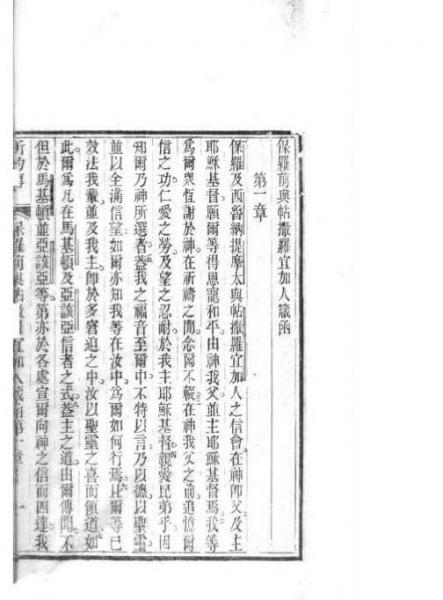 保羅前與帖撒羅宜加人箴函
第一章
保羅及西耳納提摩太與帖撒羅宜加人之信會在神即父及主
耶穌基督願爾等得恩寵和平由神我父並主耶穌基督焉我等
為爾眾恆謝於神在祈禱之間念爾不輟在神我父之前追憶爾
信之功仁愛之勞及望之忍耐於我主耶穌基督親愛昆弟乎因
知爾乃神所選者蓋我之福音至爾中不特以言乃以德以聖靈
並以全滿信望如爾亦知我等在汝中為爾如何行焉且爾等已
效法我輩並及我主即於多窘迫之中汝以聖靈之喜而領道如
此爾為凡在馬基頓及亞該亞信者之式蓋主之道由爾傳聞不
但於馬基頓並亞該亞等第亦於各處宣爾向神之信而四達我
保羅前與帖撒羅宜加人箴函第一章